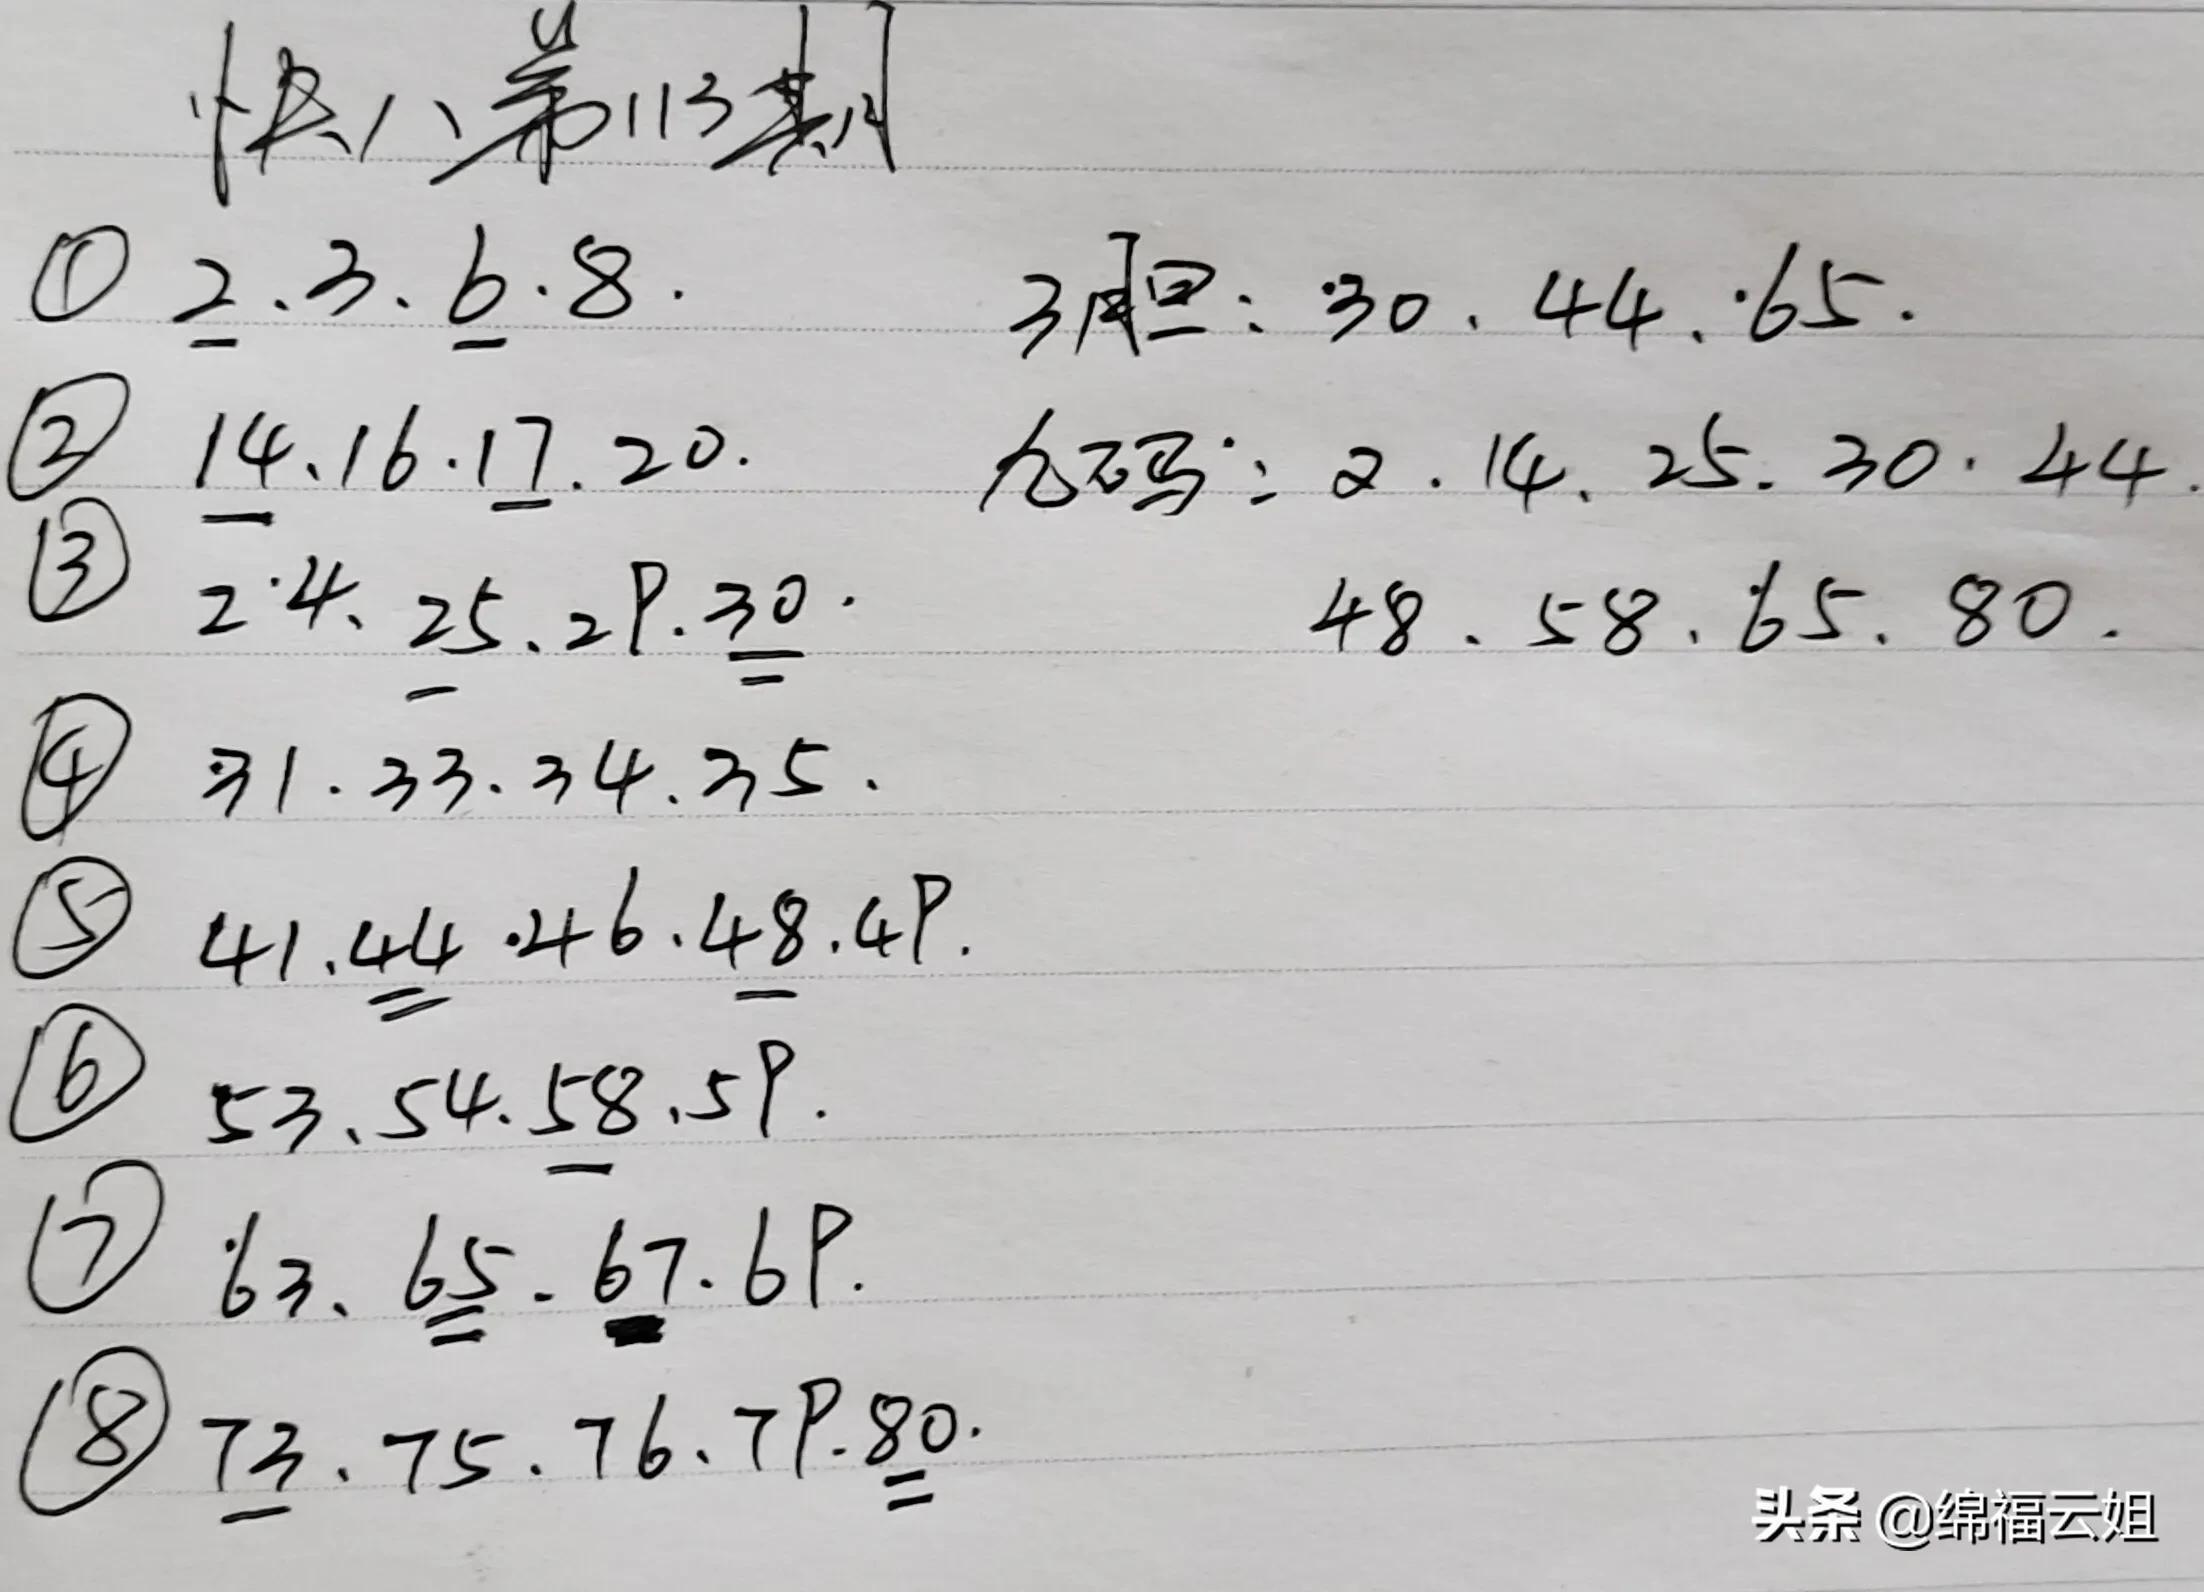 快八第113期
① 2.3.6.8.
3胆：30.44.65.
② 14.16.17.20.
九码：2.14.25.30.44.
③ 24.25.29.30.
48.58.65.80.
④ 31.33.34.35.
⑤ 41.44.46.48.49.
⑥ 53.54.58.59.
⑦ 63.65.67.69.
⑧ 73.75.76.79.80.
头条 @绵福云姐